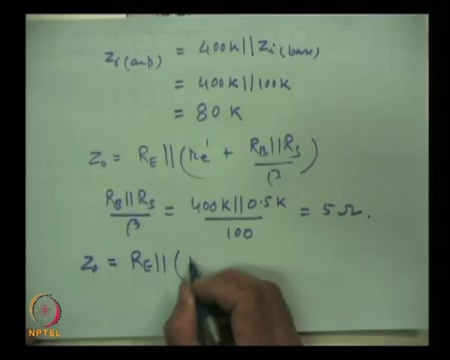 Zi(amb) = 400K||Zi(base)
= 400K||100K
= 80 K
Zo = RE||(re' + RB||RS/β)
RB||RS/β = 400K||0.5K/100 = 5Ω.
Zo = RE||(
NPTEL